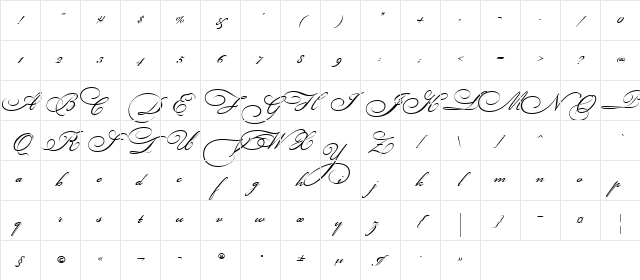 ! " # $ % & ' ( ) * + , - . / 0
1 2 3 4 5 6 7 8 9 : ; < = > ? @
A B C D E F G H I J K L M N O P
Q R S T U V W X Y Z [ \ ] ^ `
a b c d e f g h i j k l m n o p
q r s t u v w x y z { | } ~ ¤ ¦
§ © « ¬ - ® ° ± µ ¶ · »